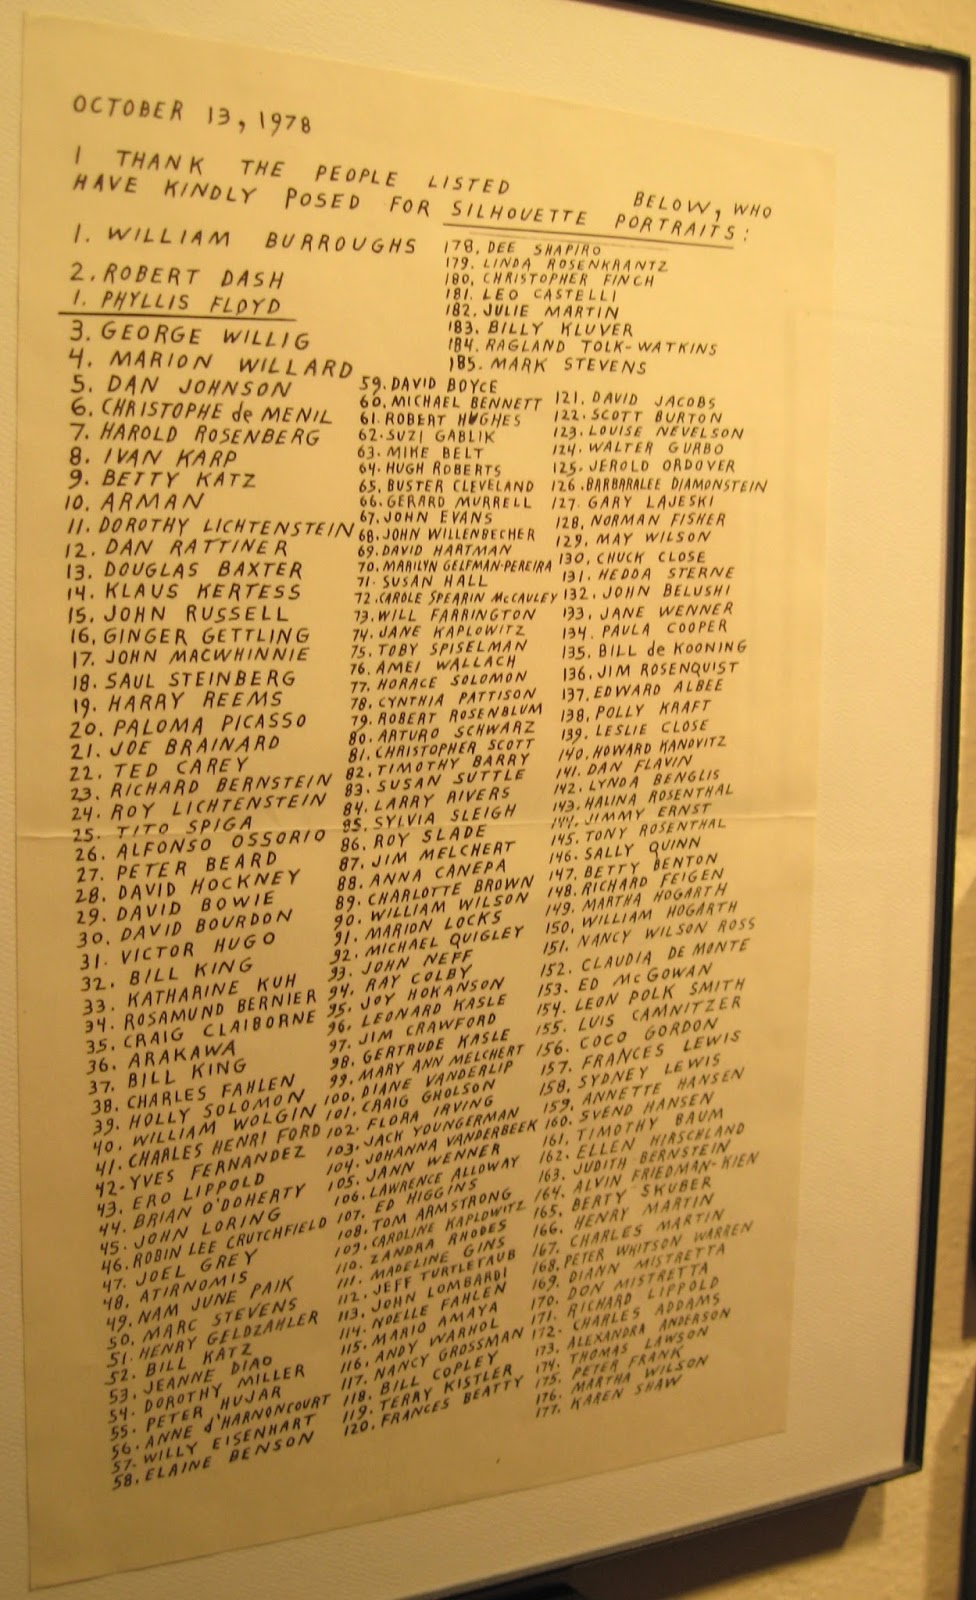 OCTOBER 13, 1978
I THANK THE PEOPLE LISTED BELOW, WHO
HAVE KINDLY POSED FOR SILHOUETTE PORTRAITS:
1. WILLIAM BURROUGHS
2. ROBERT DASH
1. PHYLLIS FLOYD
3. GEORGE WILLIG
4. MARION WILLARD
5. DAN JOHNSON
6. CHRISTOPHE de MENIL
7. HAROLD ROSENBERG
8. IVAN KARP
9. BETTY KATZ
10. ARMAN
11. DOROTHY LICHTENSTEIN
12. DAN RATTINER
13. DOUGLAS BAXTER
14. KLAUS KERTESS
15. JOHN RUSSELL
16. GINGER GETTLING
17. JOHN MACWHINNIE
18. SAUL STEINBERG
19. HARRY REEMS
20. PALOMA PICASSO
21. JOE BRAINARD
22. TED CAREY
23. RICHARD BERNSTEIN
24. ROY LICHTENSTEIN
25. TITO SPIGA
26. ALFONSO OSSORIO
27. PETER BEARD
28. DAVID HOCKNEY
29. DAVID BOWIE
30. DAVID BOURDON
31. VICTOR HUGO
32. BILL KING
33. KATHARINE KUH
34. ROSAMUND BERNIER
35. CRAIG CLAIBORNE
36. ARAKAWA
37. BILL KING
38. CHARLES FAHLEN
39. HOLLY SOLOMON
40. WILLIAM WOLGIN
41. CHARLES HENRI FORD
42. YVES FERNANDEZ
43. ERO LIPPOLD
44. BRIAN O'DOHERTY
45. JOHN LORING
46. ROBIN LEE CRUTCHFIELD
47. JOEL GREY
48. ATIRNOMIS
49. NAM JUNE PAIK
50. MARC STEVENS
51. HENRY GELDZAHLER
52. BILL KATZ
53. JEANNE DIAO
54. DOROTHY MILLER
55. PETER HUJAR
56. ANNE d'HARNONCOURT
57. WILLY EISENHART
58. ELAINE BENSON
178. DEE SHAPIRO
179. LINDA ROSENKRANTZ
180. CHRISTOPHER FINCH
181. LEO CASTELLI
182. JULIE MARTIN
183. BILLY KLUVER
184. RAGLAND TOLK-WATKINS
185. MARK STEVENS
59. DAVID BOYCE
60. MICHAEL BENNETT
61. ROBERT HUGHES
62. SUZI GABLIK
63. MIKE BELT
64. HUGH ROBERTS
65. BUSTER CLEVELAND
66. GERARD MURRELL
67. JOHN EVANS
68. JOHN WILLENBECHER
69. DAVID HARTMAN
70. MARILYN GELFMAN-PEREIRA
71. SUSAN HALL
72. CAROLE SPEARIN McCAULEY
73. WILL FARRINGTON
74. JANE KAPLOWITZ
75. TOBY SPISELMAN
76. AMEI WALLACH
77. HORACE SOLOMON
78. CYNTHIA PATTISON
79. ROBERT ROSENBLUM
80. ARTURO SCHWARZ
81. CHRISTOPHER SCOTT
82. TIMOTHY BARRY
83. SUSAN SUTTLE
84. LARRY RIVERS
85. SYLVIA SLEIGH
86. ROY SLADE
87. JIM MELCHERT
88. ANNA CANEPA
89. CHARLOTTE BROWN
90. WILLIAM WILSON
91. MARION LOCKS
92. MICHAEL QUIGLEY
93. JOHN NEFF
94. RAY COLBY
95. JOY HOKANSON
96. LEONARD KASLE
97. JIM CRAWFORD
98. GERTRUDE KASLE
99. MARY ANN MELCHERT
100. DIANE VANDERLIP
101. CRAIG GHOLSON
102. FLORA IRVING
103. JACK YOUNGERMAN
104. JOHANNA VANDERBEEK
105. JANN WENNER
106. LAWRENCE ALLOWAY
107. ED HIGGINS
108. TOM ARMSTRONG
109. CAROLINE KAPLOWITZ
110. ZANDRA RHODES
111. MADELINE GINS
112. JEFF TURTLETAUB
113. JOHN LOMBARDI
114. NOELLE FAHLEN
115. MARIO AMAYA
116. ANDY WARHOL
117. NANCY GROSSMAN
118. BILL COPLEY
119. TERRY KISTLER
120. FRANCES BEATTY
121. DAVID JACOBS
122. SCOTT BURTON
123. LOUISE NEVELSON
124. WALTER GURBO
125. JEROLD ORDOVER
126. BARBARALEE DIAMONSTEIN
127. GARY LAJESKI
128. NORMAN FISHER
129. MAY WILSON
130. CHUCK CLOSE
131. HEDDA STERNE
132. JOHN BELUSHI
133. JANE WENNER
134. PAULA COOPER
135. BILL de KOONING
136. JIM ROSENQUIST
137. EDWARD ALBEE
138. POLLY KRAFT
139. LESLIE CLOSE
140. HOWARD KANOVITZ
141. DAN FLAVIN
142. LYNDA BENGLIS
143. HALINA ROSENTHAL
144. JIMMY ERNST
145. TONY ROSENTHAL
146. SALLY QUINN
147. BETTY BENTON
148. RICHARD FEIGEN
149. MARTHA HOGARTH
150. WILLIAM HOGARTH
151. NANCY WILSON ROSS
152. CLAUDIA DE MONTE
153. ED McGOWAN
154. LEON POLK SMITH
155. LUIS CAMNITZER
156. COCO GORDON
157. FRANCES LEWIS
158. SYDNEY LEWIS
159. ANNETTE HANSEN
160. SVEND HANSEN
161. TIMOTHY BAUM
162. ELLEN HIRSCHLAND
163. JUDITH BERNSTEIN
164. ALVIN FRIEDMAN-KIEN
165. BERTY SKUBER
166. HENRY MARTIN
167. CHARLES MARTIN
168. PETER WHITSON WARREN
169. DIANN MISTRETTA
170. DON MISTRETTA
171. RICHARD LIPPOLD
172. CHARLES ADDAMS
173. ALEXANDRA ANDERSON
174. THOMAS LAWSON
175. PETER FRANK
176. MARTHA WILSON
177. KAREN SHAW